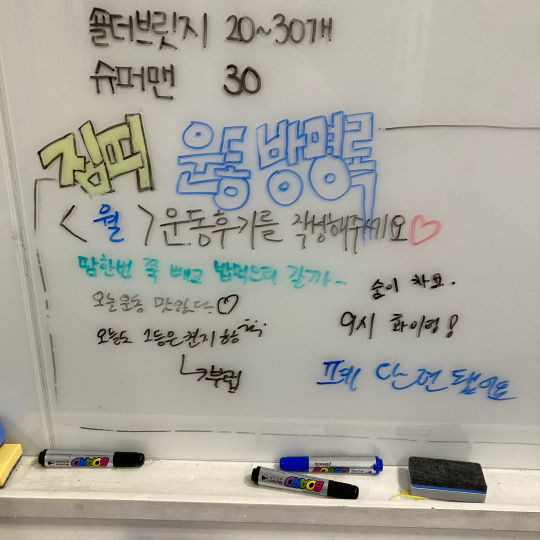 숄더브릿지 20~30개
슈퍼맨 30
짐픽 운동 방명록
<월> 운동후기를 작성해주세요♡
땀한번 쭉 빼고 밥먹으러 갈까~
오늘운동 맛있다♡
숨이 차요.
9시 화이팅!
오늘도 1등은 현지
↳부럽
단련됐어요
BOARD
BOARD